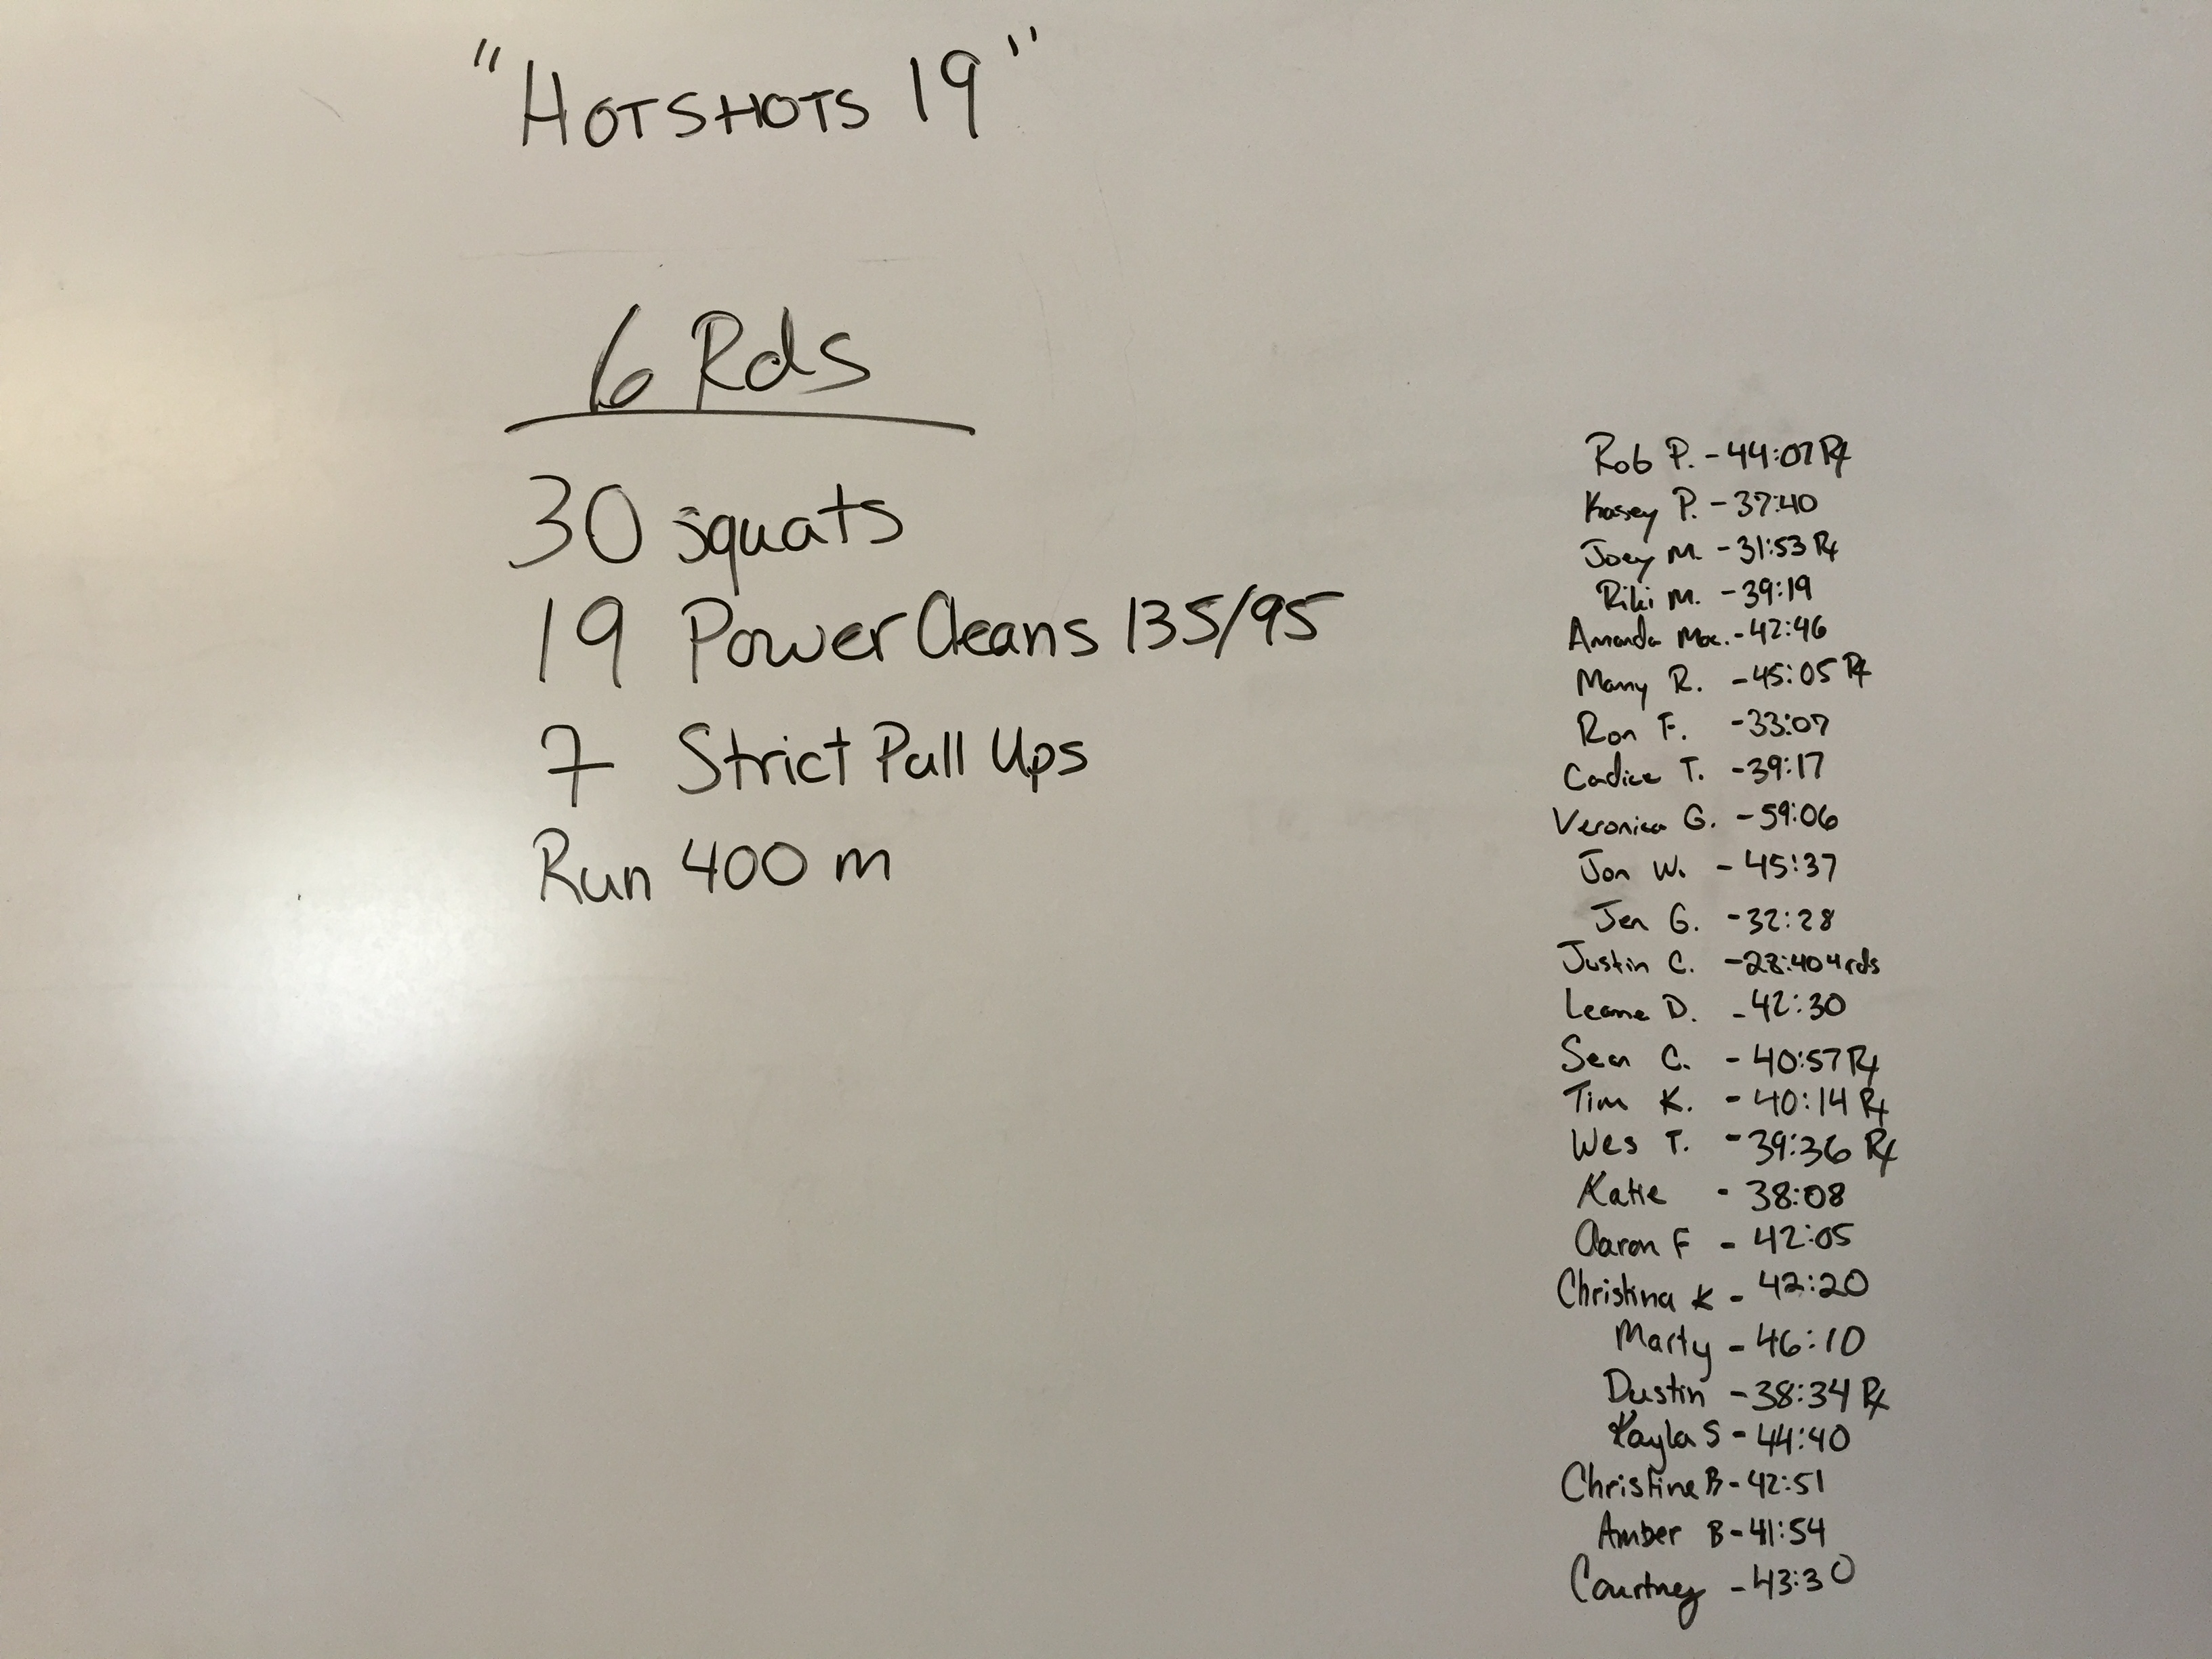 "HOTSHOTS 19"
6 Rds
30 squats
19 Power Cleans 135/95
7 Strict Pull Ups
Run 400 m
Rob P. - 44:07 Rx
Kasey P. - 37:40
Joey M. - 31:53 Rx
Riki M. - 39:19
Amanda Mac. - 42:46
Manny R. - 45:05 Rx
Ron F. - 33:07
Candice T. - 39:17
Veronica G. - 59:06
Jon W. - 45:37
Jen G. - 32:28
Justin C. - 28:40 4rds
Leanne D. - 42:30
Sean C. - 40:57 Rx
Tim K. - 40:14 Rx
Wes T. - 39:36 Rx
Katie - 38:08
Aaron F - 42:05
Christina K - 42:20
Marty - 46:10
Dustin - 38:34 Rx
Kayla S - 44:40
Christine B - 42:51
Amber B - 41:54
Courtney - 43:30